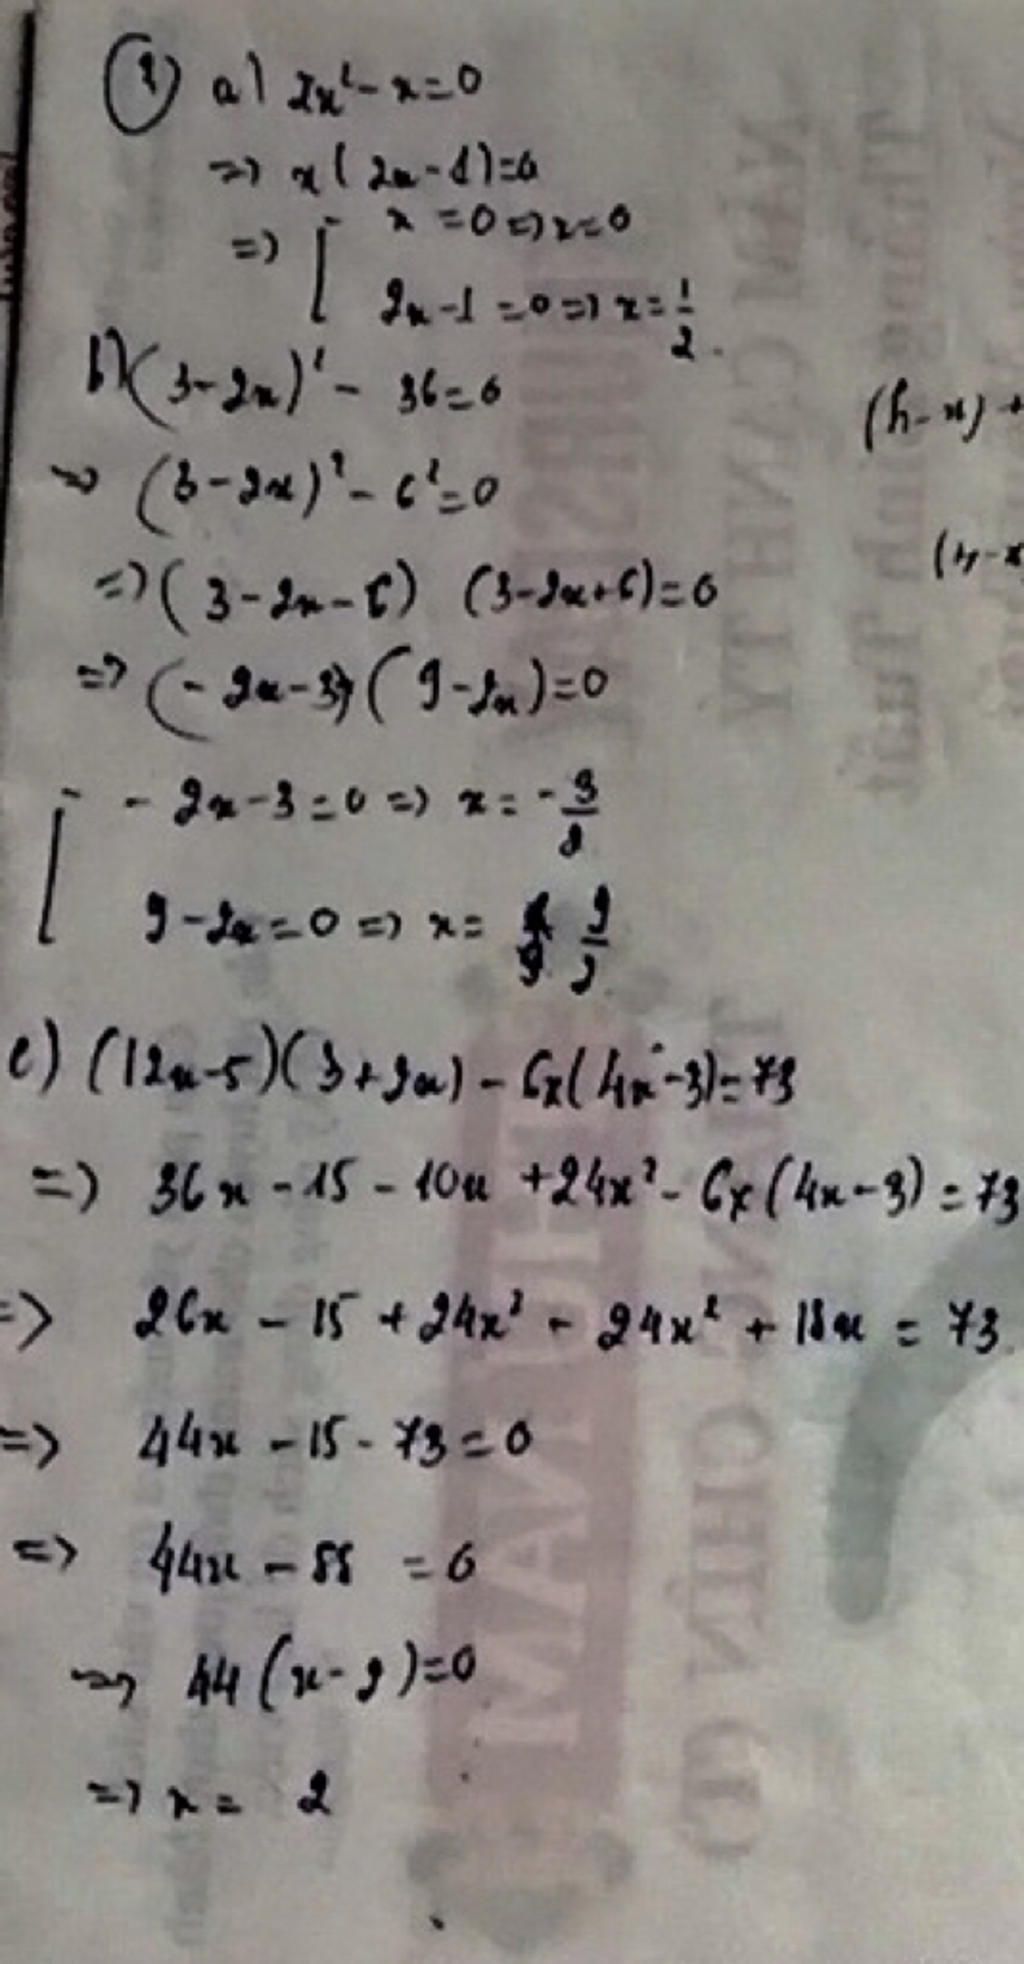 ① a) 2x² - x = 0
=> x(2x - 1) = 0
=> [ x = 0 => x = 0
2x - 1 = 0 => x = 1/2.
b) (3 - 2x)² - 36 = 0
=> (3 - 2x)² - 6² = 0
=> (3 - 2x - 6) (3 - 2x + 6) = 0
=> (- 2x - 3) (9 - 2x) = 0
[ - 2x - 3 = 0 => x = - 3/2
9 - 2x = 0 => x = 9/2
c) (12x - 5)(3 + 2x) - 6x(4x - 3) = 73
=> 36x - 15 - 10x + 24x² - 6x(4x - 3) = 73
=> 26x - 15 + 24x² - 24x² + 18x = 73
=> 44x - 15 - 73 = 0
=> 44x - 88 = 0
=> 44(x - 2) = 0
=> x = 2